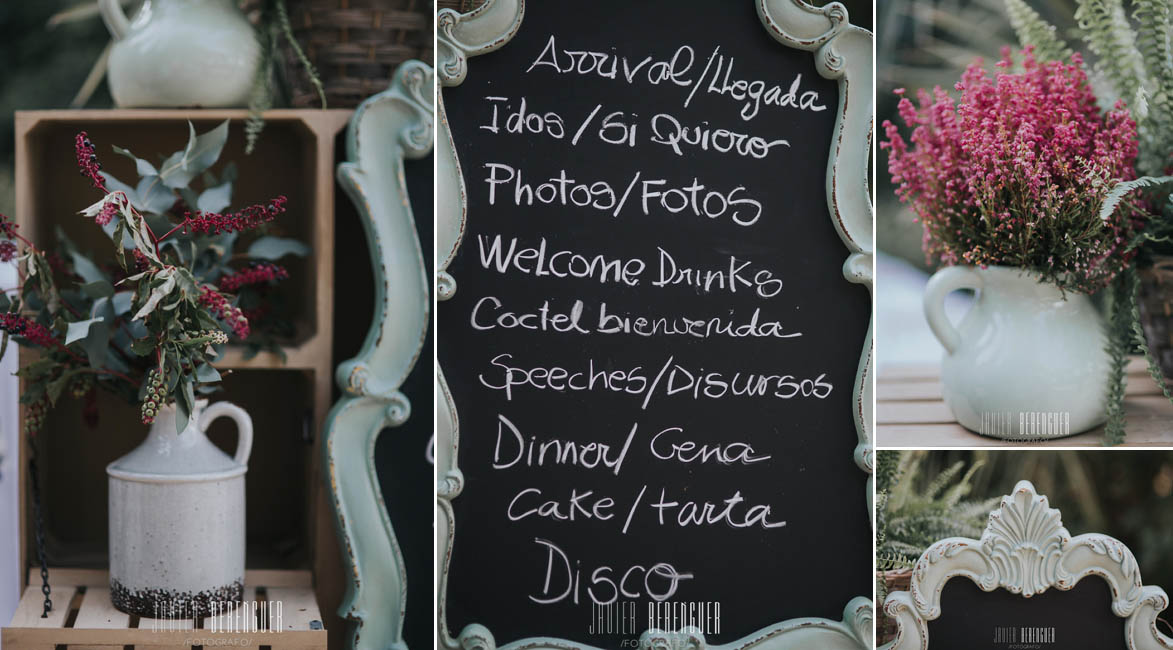 Arrival/Llegada
Idos/Si Quiero
Photos/Fotos
Welcome Drinks
Coctel bienvenida
Speeches/Discursos
Dinner/Cena
Cake/tarta
Disco
JAVIER BERENGUER
/FOTÓGRAFO/
JAVIER BERENGUER
/FOTÓGRAFO/
JAVIER BERENGUER
/FOTÓGRAFO/
JAVIER BERENGUER
/FOTÓGRAFO/